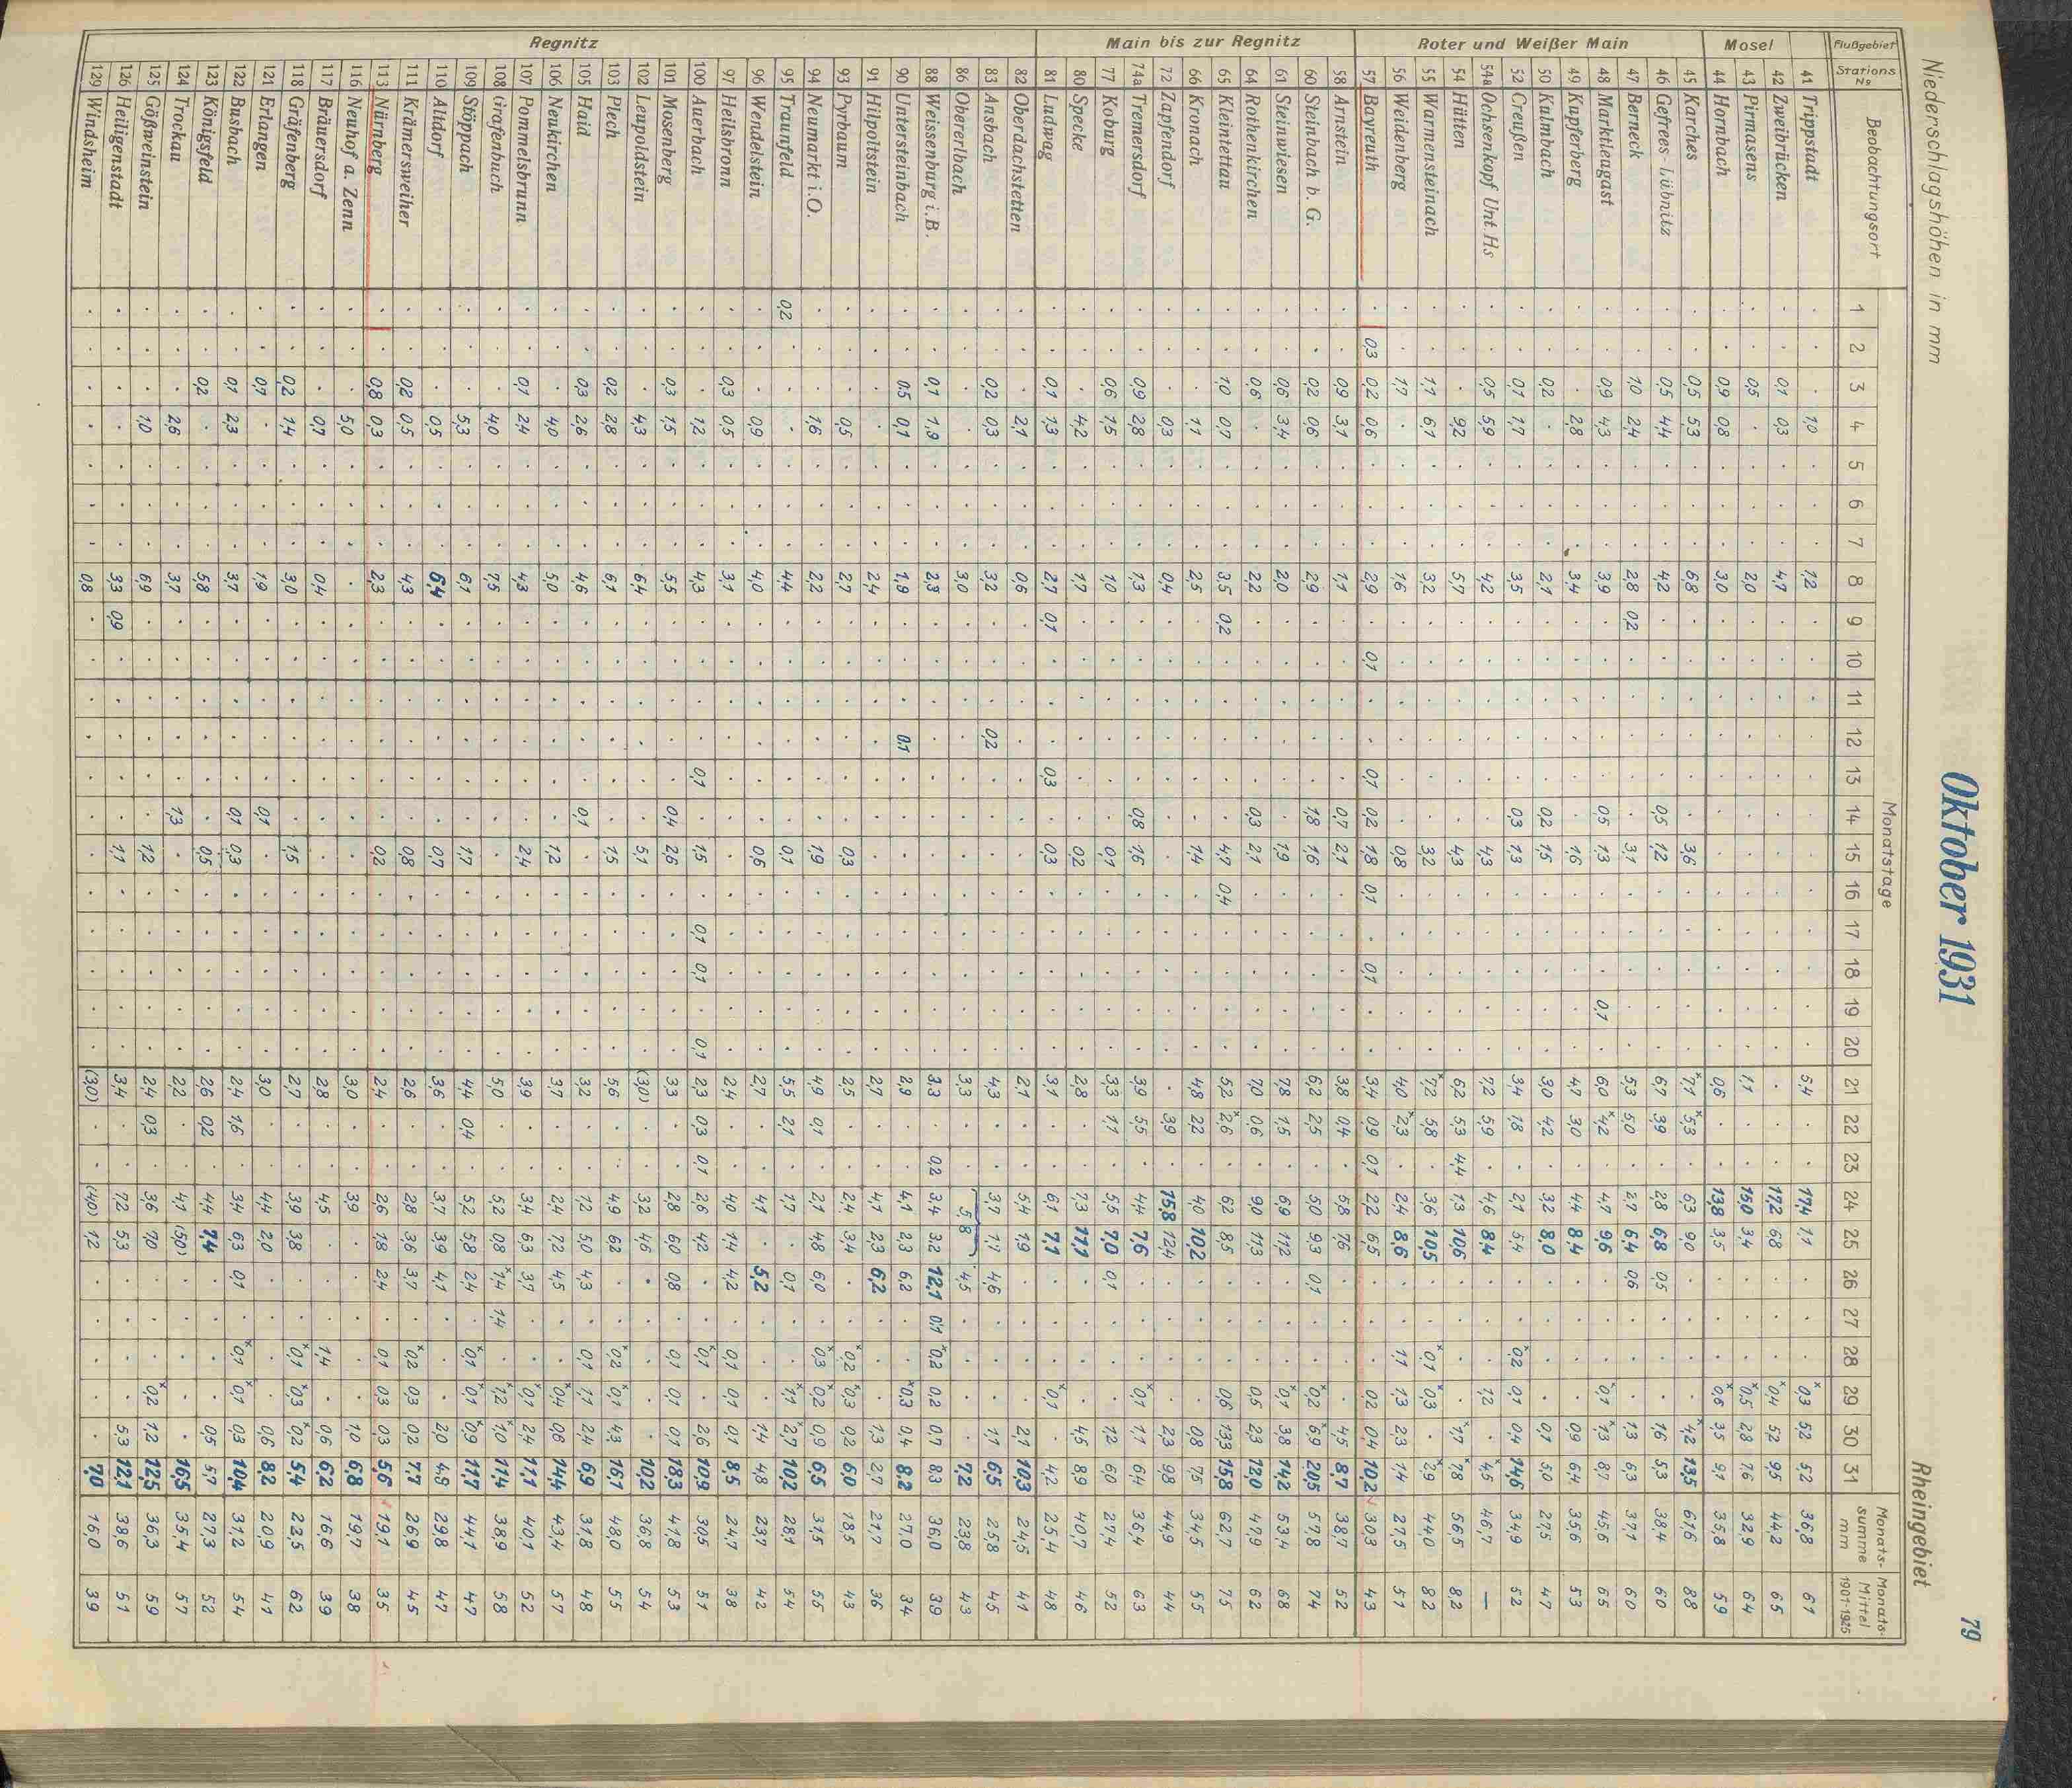 Niederschlagshöhen in mm
Oktober 1931
Rheingebiet
79
Flußgebiet Stations No Beobachtungsort Monatstage Monats-summe mm Monats-Mittel 1901-1925
1 2 3 4 5 6 7 8 9 10 11 12 13 14 15 16 17 18 19 20 21 22 23 24 25 26 27 28 29 30 31
Mosel
41 Trippstadt 1,0 1,2 5,4 17,4 1,1 ×0,3 5,2 5,2 36,8 61
42 Zweibrücken 0,1 0,3 4,7 17,2 6,8 ×0,4 5,2 9,5 44,2 65
43 Pirmasens 0,5 2,0 1,1 15,0 3,4 ×0,5 2,8 7,6 32,9 64
44 Hornbach 0,9 0,8 3,0 0,6 13,8 3,5 ×0,6 3,5 9,1 35,8 59
Roter und Weißer Main
45 Karches 0,5 5,3 6,8 3,6 ×7,1 ×5,3 6,3 9,0 ×4,2 13,5 61,6 88
46 Gefrees-Lübnitz 0,5 4,4 4,2 0,5 1,2 6,7 3,9 2,8 6,8 0,5 1,6 5,3 38,4 60
47 Berneck 1,0 2,4 2,8 0,2 3,1 5,3 5,0 2,7 6,4 0,6 1,3 6,3 37,1 60
48 Marktleugast 0,9 4,3 3,9 0,5 1,3 0,1 6,0 ×4,2 4,7 9,6 ×0,1 ×1,3 8,7 45,6 65
49 Kupferberg 2,8 3,4 1,6 4,7 3,0 4,4 8,4 0,9 6,4 35,6 53
50 Kulmbach 0,2 2,1 0,2 1,5 3,0 4,2 3,2 8,0 0,1 5,0 27,5 47
52 Creußen 0,1 1,7 3,5 0,3 1,3 3,4 1,8 2,1 5,4 ×0,2 0,1 0,4 14,6 34,9 52
54a Ochsenkopf Unt Hs 0,5 5,9 4,2 4,3 7,2 5,9 4,6 8,4 1,2 ×4,5 46,7 —
54 Hütten 9,2 5,7 4,3 6,2 5,3 4,4 1,3 10,6 ×1,7 ×7,8 56,5 82
55 Warmensteinach 1,1 6,1 3,2 3,2 ×7,2 5,8 3,6 10,5 ×0,1 ×0,3 ×2,9 44,0 82
56 Weidenberg 1,7 1,6 0,8 4,0 ×2,3 2,4 8,6 1,1 1,3 2,3 1,4 27,5 51
57 Bayreuth 0,3 0,2 0,6 2,9 0,1 0,1 0,2 1,8 0,1 0,1 3,4 0,9 0,1 2,2 6,5 0,2 0,4 10,2 30,3 43
Main bis zur Regnitz
58 Arnstein 0,9 3,1 1,1 0,7 2,1 3,8 0,4 5,8 7,6 4,5 8,7 38,7 52
60 Steinbach b. G. 0,2 0,6 2,9 1,8 1,6 6,2 2,5 5,0 9,3 0,1 ×0,2 ×6,9 20,5 57,8 74
61 Steinwiesen 0,6 3,4 2,0 1,9 7,8 1,5 6,9 11,2 ×0,1 3,8 14,2 53,4 68
64 Rothenkirchen 0,6 2,2 0,3 2,1 7,0 0,6 9,0 11,3 0,5 2,3 12,0 47,9 62
65 Kleintettau 1,0 0,7 3,5 0,2 4,7 0,4 5,2 ×2,6 6,2 8,5 0,6 13,3 15,8 62,7 75
66 Kronach 1,1 2,5 1,4 4,8 2,2 4,0 10,2 0,8 7,5 34,5 55
72 Zapfendorf 0,3 0,4 3,9 15,8 12,4 2,3 9,8 44,9 44
74a Tremersdorf 0,9 2,8 1,3 0,8 1,6 3,9 5,5 4,4 7,6 ×0,1 1,1 6,4 36,4 63
77 Koburg 0,6 1,5 1,0 0,1 3,3 1,1 5,5 7,0 0,1 1,2 6,0 27,4 52
80 Specke 4,2 1,7 0,2 2,8 7,3 11,1 4,5 8,9 40,7 46
81 Ludwag 0,1 1,3 2,7 0,1 0,3 0,3 3,1 6,1 7,1 ×0,1 4,2 25,4 48
Regnitz
82 Oberdachstetten 2,1 0,6 2,1 5,4 1,9 2,1 10,3 24,5 41
83 Ansbach 0,2 0,3 3,2 0,2 4,3 3,7 1,1 4,6 1,1 6,5 25,8 45
86 Obererlbach 3,0 3,3 5,8 4,5 7,2 23,8 43
88 Weissenburg i.B. 0,1 1,9 2,3 3,3 0,2 3,4 3,2 12,1 0,1 ×0,2 0,2 0,7 8,3 36,0 39
90 Untersteinbach 0,5 0,1 1,9 0,1 2,9 4,1 2,3 6,2 ×0,3 0,4 8,2 27,0 34
91 Hilpoltstein 2,4 2,7 4,1 2,3 6,2 1,3 2,7 21,7 36
93 Pyrbaum 0,5 2,7 0,3 2,5 2,4 3,4 ×0,2 ×0,3 0,2 6,0 18,5 43
94 Neumarkt i.O. 1,6 2,2 1,9 4,9 0,1 2,1 4,8 6,0 ×0,3 ×0,2 0,9 6,5 31,5 55
95 Traunfeld 0,2 4,4 0,1 5,5 2,1 1,7 0,1 ×1,1 ×2,7 10,2 28,1 54
96 Wendelstein 0,9 4,0 0,6 2,7 4,1 5,2 1,4 4,8 23,7 42
97 Heilsbronn 0,3 0,5 3,1 2,4 4,0 1,4 4,2 0,1 0,1 0,1 8,5 24,7 38
100 Auerbach 1,2 4,3 0,1 1,5 0,1 0,1 0,1 2,3 0,3 0,1 2,6 4,2 ×0,1 2,6 10,9 30,5 51
101 Mosenberg 0,3 1,5 5,5 0,4 2,6 3,3 2,8 6,0 0,8 0,1 0,1 0,1 18,3 41,8 53
102 Leupoldstein 4,3 6,4 5,1 (3,0) 3,2 4,6 10,2 36,8 54
103 Plech 0,2 2,8 6,1 1,5 5,6 4,9 6,2 ×0,2 ×0,1 4,3 16,1 48,0 55
105 Haid 0,3 2,6 4,6 0,1 3,2 7,2 5,0 4,3 0,1 1,1 2,4 6,9 31,8 48
106 Neukirchen 4,0 5,0 1,2 3,7 2,4 7,2 4,5 ×0,4 0,6 14,4 43,4 57
107 Pommelsbrunn 0,1 2,4 4,3 2,4 3,9 3,4 6,3 3,7 ×0,1 2,4 11,1 40,1 52
108 Grafenbuch 4,0 7,5 5,0 5,2 0,8 ×7,4 1,4 ×1,2 ×1,0 11,4 38,9 58
109 Stöppach 5,3 6,1 1,7 4,4 0,4 5,2 5,8 2,4 ×0,1 ×0,1 ×0,9 11,7 44,1 47
110 Altdorf 0,5 6,4 0,7 3,6 3,7 3,9 4,1 2,0 4,9 29,8 47
111 Krämersweiher 0,2 0,5 4,3 0,8 2,6 2,8 3,6 3,7 ×0,2 0,3 0,2 7,7 26,9 45
113 Nürnberg 0,8 0,3 2,3 0,2 2,4 2,6 1,8 2,4 0,1 0,3 0,3 5,6 19,1 35
116 Neuhof a. Zenn 5,0 3,0 3,9 1,0 6,8 19,7 38
117 Bräuersdorf 0,7 0,4 2,8 4,5 1,4 0,6 6,2 16,6 39
118 Gräfenberg 0,2 1,4 3,0 1,5 2,7 3,9 3,8 ×0,1 ×0,3 ×0,2 5,4 22,5 62
121 Erlangen 0,7 1,9 0,1 3,0 4,4 2,0 0,6 8,2 20,9 41
122 Busbach 0,1 2,3 3,7 0,1 0,3 2,4 1,6 3,4 6,3 0,1 ×0,1 ×0,1 0,3 10,4 31,2 54
123 Königsfeld 0,2 5,8 0,5 2,6 0,2 4,4 7,4 0,5 5,7 27,3 52
124 Trockau 2,6 3,7 1,3 2,2 4,1 (5,0) 16,5 35,4 57
125 Gößweinstein 1,0 6,9 1,2 2,4 0,3 3,6 7,0 ×0,2 1,2 12,5 36,3 59
126 Heiligenstadt 3,3 0,9 1,1 3,4 7,2 5,3 5,3 12,1 38,6 51
129 Windsheim 0,8 (3,0) (4,0) 1,2 7,0 16,0 39